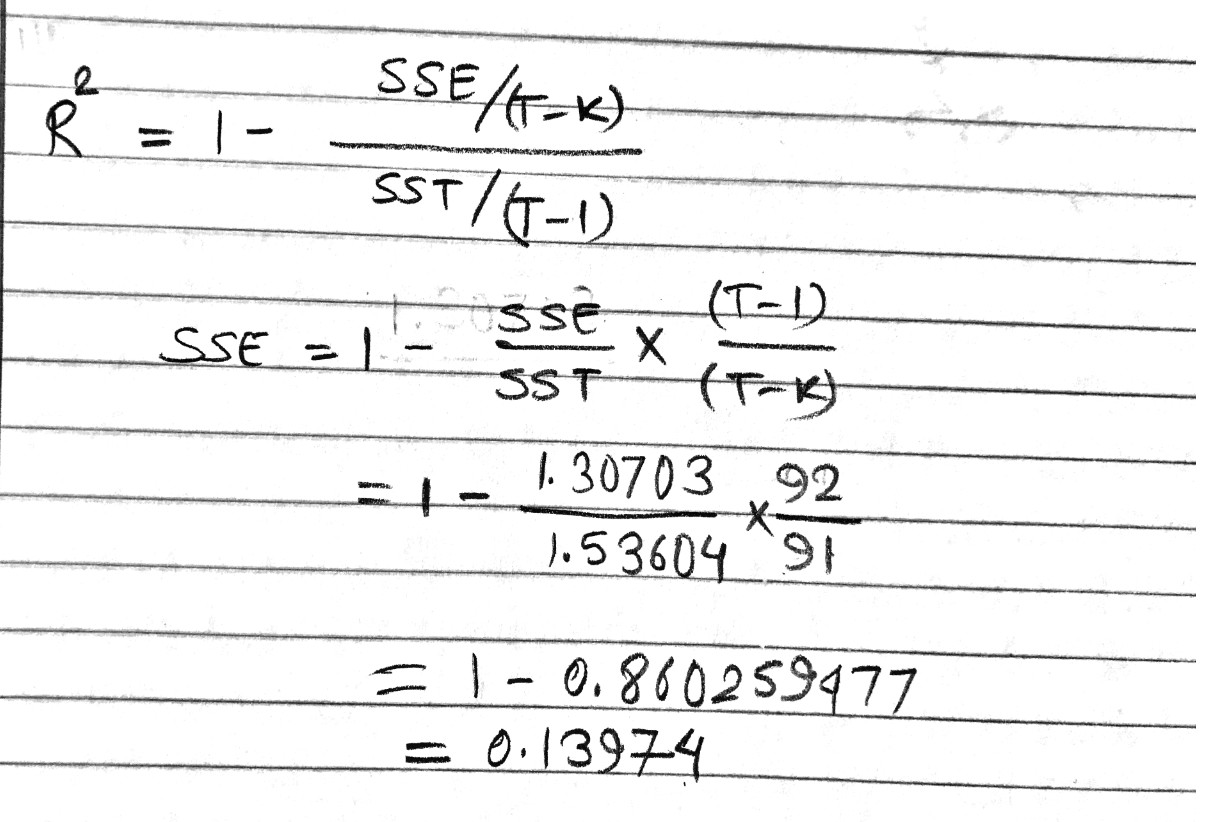 R² = 1 - SSE/(T-K) / SST/(T-1)
SSE = 1 - SSE/SST × (T-1)/(T-K)
= 1 - 1.30703/1.53604 × 92/91
= 1 - 0.860259477
= 0.13974